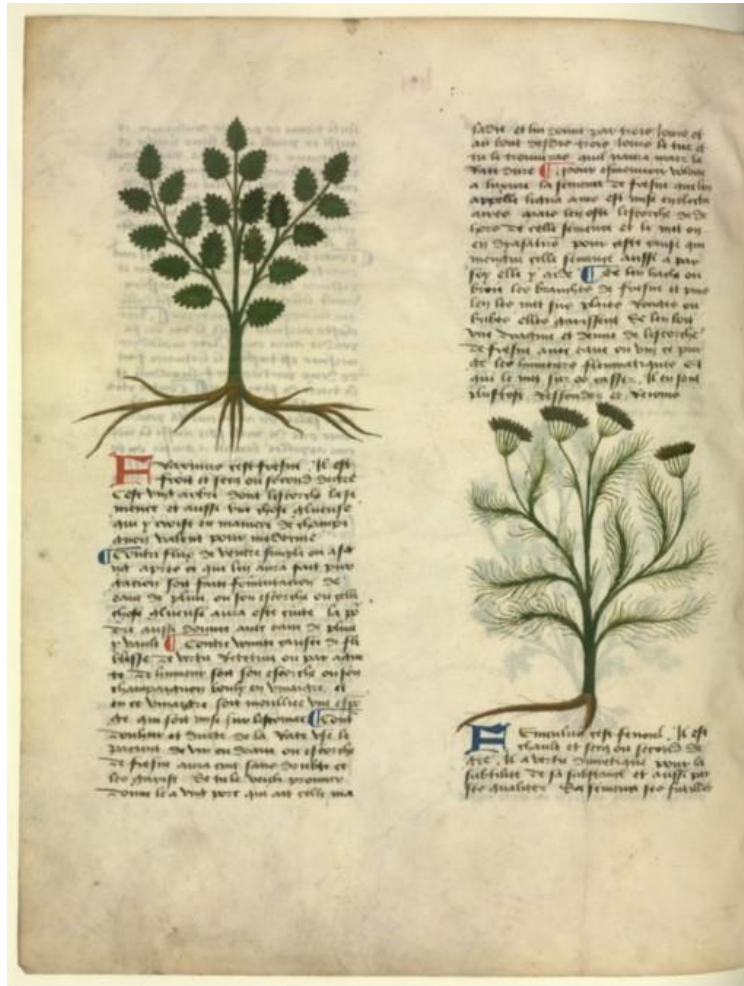 Fraxinus cest fresne. Il est
froit et secq ou second degre
Cest ung arbre dont lescorche la se
mence et aussi une chose glueuse
qui y croist en maniere de champi
gnon valent pour medecine
Contre flux de ventre
apres ce qui len aura fait pur
gacion soit faite fomentacion de
eaue de pluie ou son escorche ou celle
chose glueuse aura este cuite la po
dre aussi donnee avec eaue de pluie
y vault Contre vomite causee de fe
blesse de vertu retentive ou par ague
te de humeur soit son escorche ou son
champaignon bouly en vinaigre et
en ce vinaigre soit moullie une espo
ge qui soit mise sur lestomac Cont
douleur et durte de la rate use le
pacient de vin ou eaue ou escorche
de fresne aura cuit sans doubte ce
les garist Se tu le veulx prouver
donne le a ung porc qui ait celle ma
ladie et lui donne par trois jours et
au bout desdis trois jours le tue et
tu le trouveras quil naura mais la
rate dure Pour esmouvoir volente
a luxure la semence de fresne que len
appelle lingua avis est mise en
mais len oste lescorche de de
hors de celle semence et la met on
en pour ceste cause qui
mengue celle semence aussi a par
soy elle y aide Se len hache ou
broie les branches de fresne et puis
len les met sur plaies rouges ou
elles garissent Se len boit
une dragme et demie de lescorche
de fresne avec eaue ou vin ce pur
ge les humeurs fleumatiques Et
qui le met sur os casses Il en sont
plus tost ressoudes et
Feniculus cest fenoul. Il est
chault et secq ou second de
gre. Il a vertu diuretique pour la
subtilite de sa substance et aussi par
ses qualites Sa semence ses fueilles